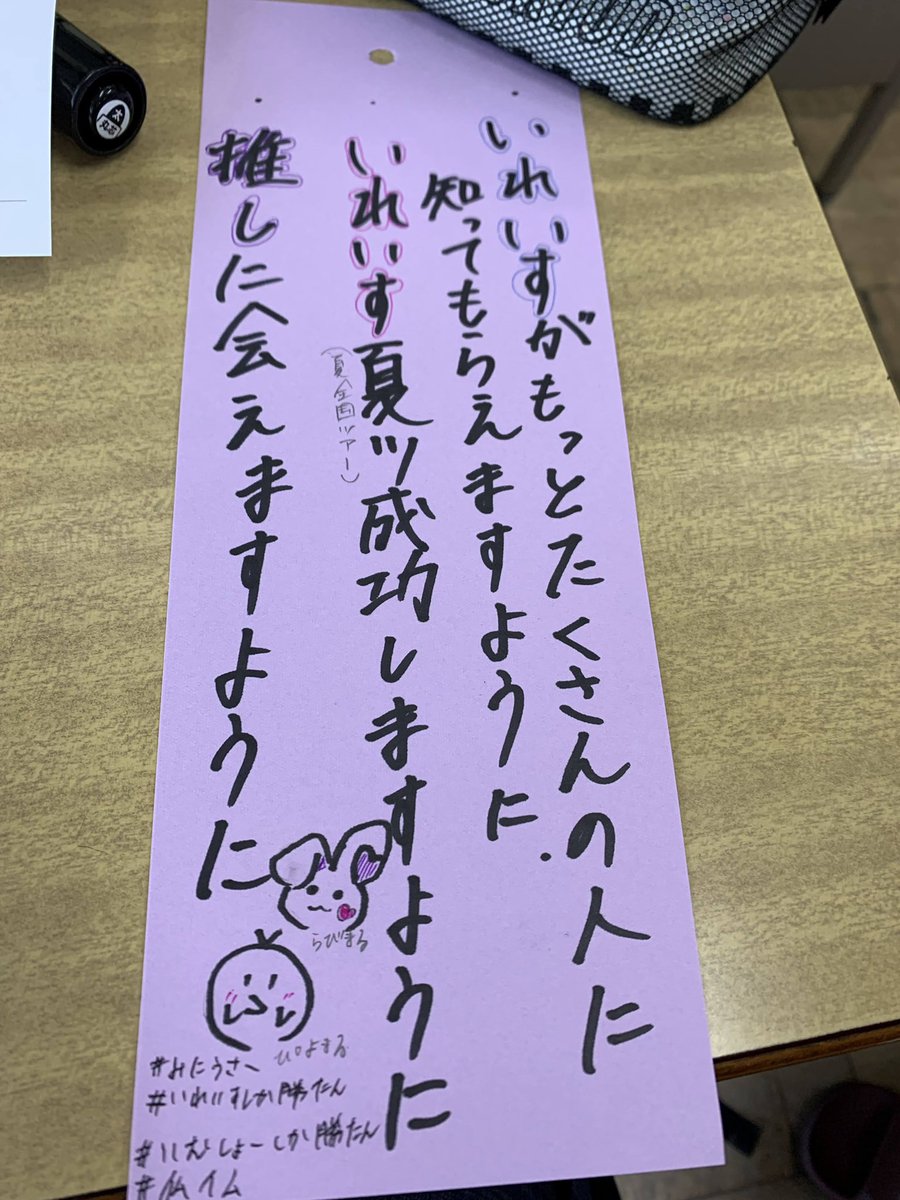 いれいすがもっとたくさんの人に
知ってもらえますように
いれいす夏ツ成功しますように
(夏全国ツアー)
推しに会えますように
らびまる
ぴよまる
#みにうさー
#いれいすしか勝たん
#りうしょーしか勝たん
太